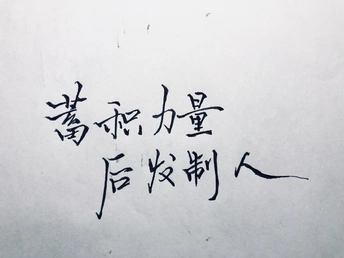 蓄积力量
后发制人